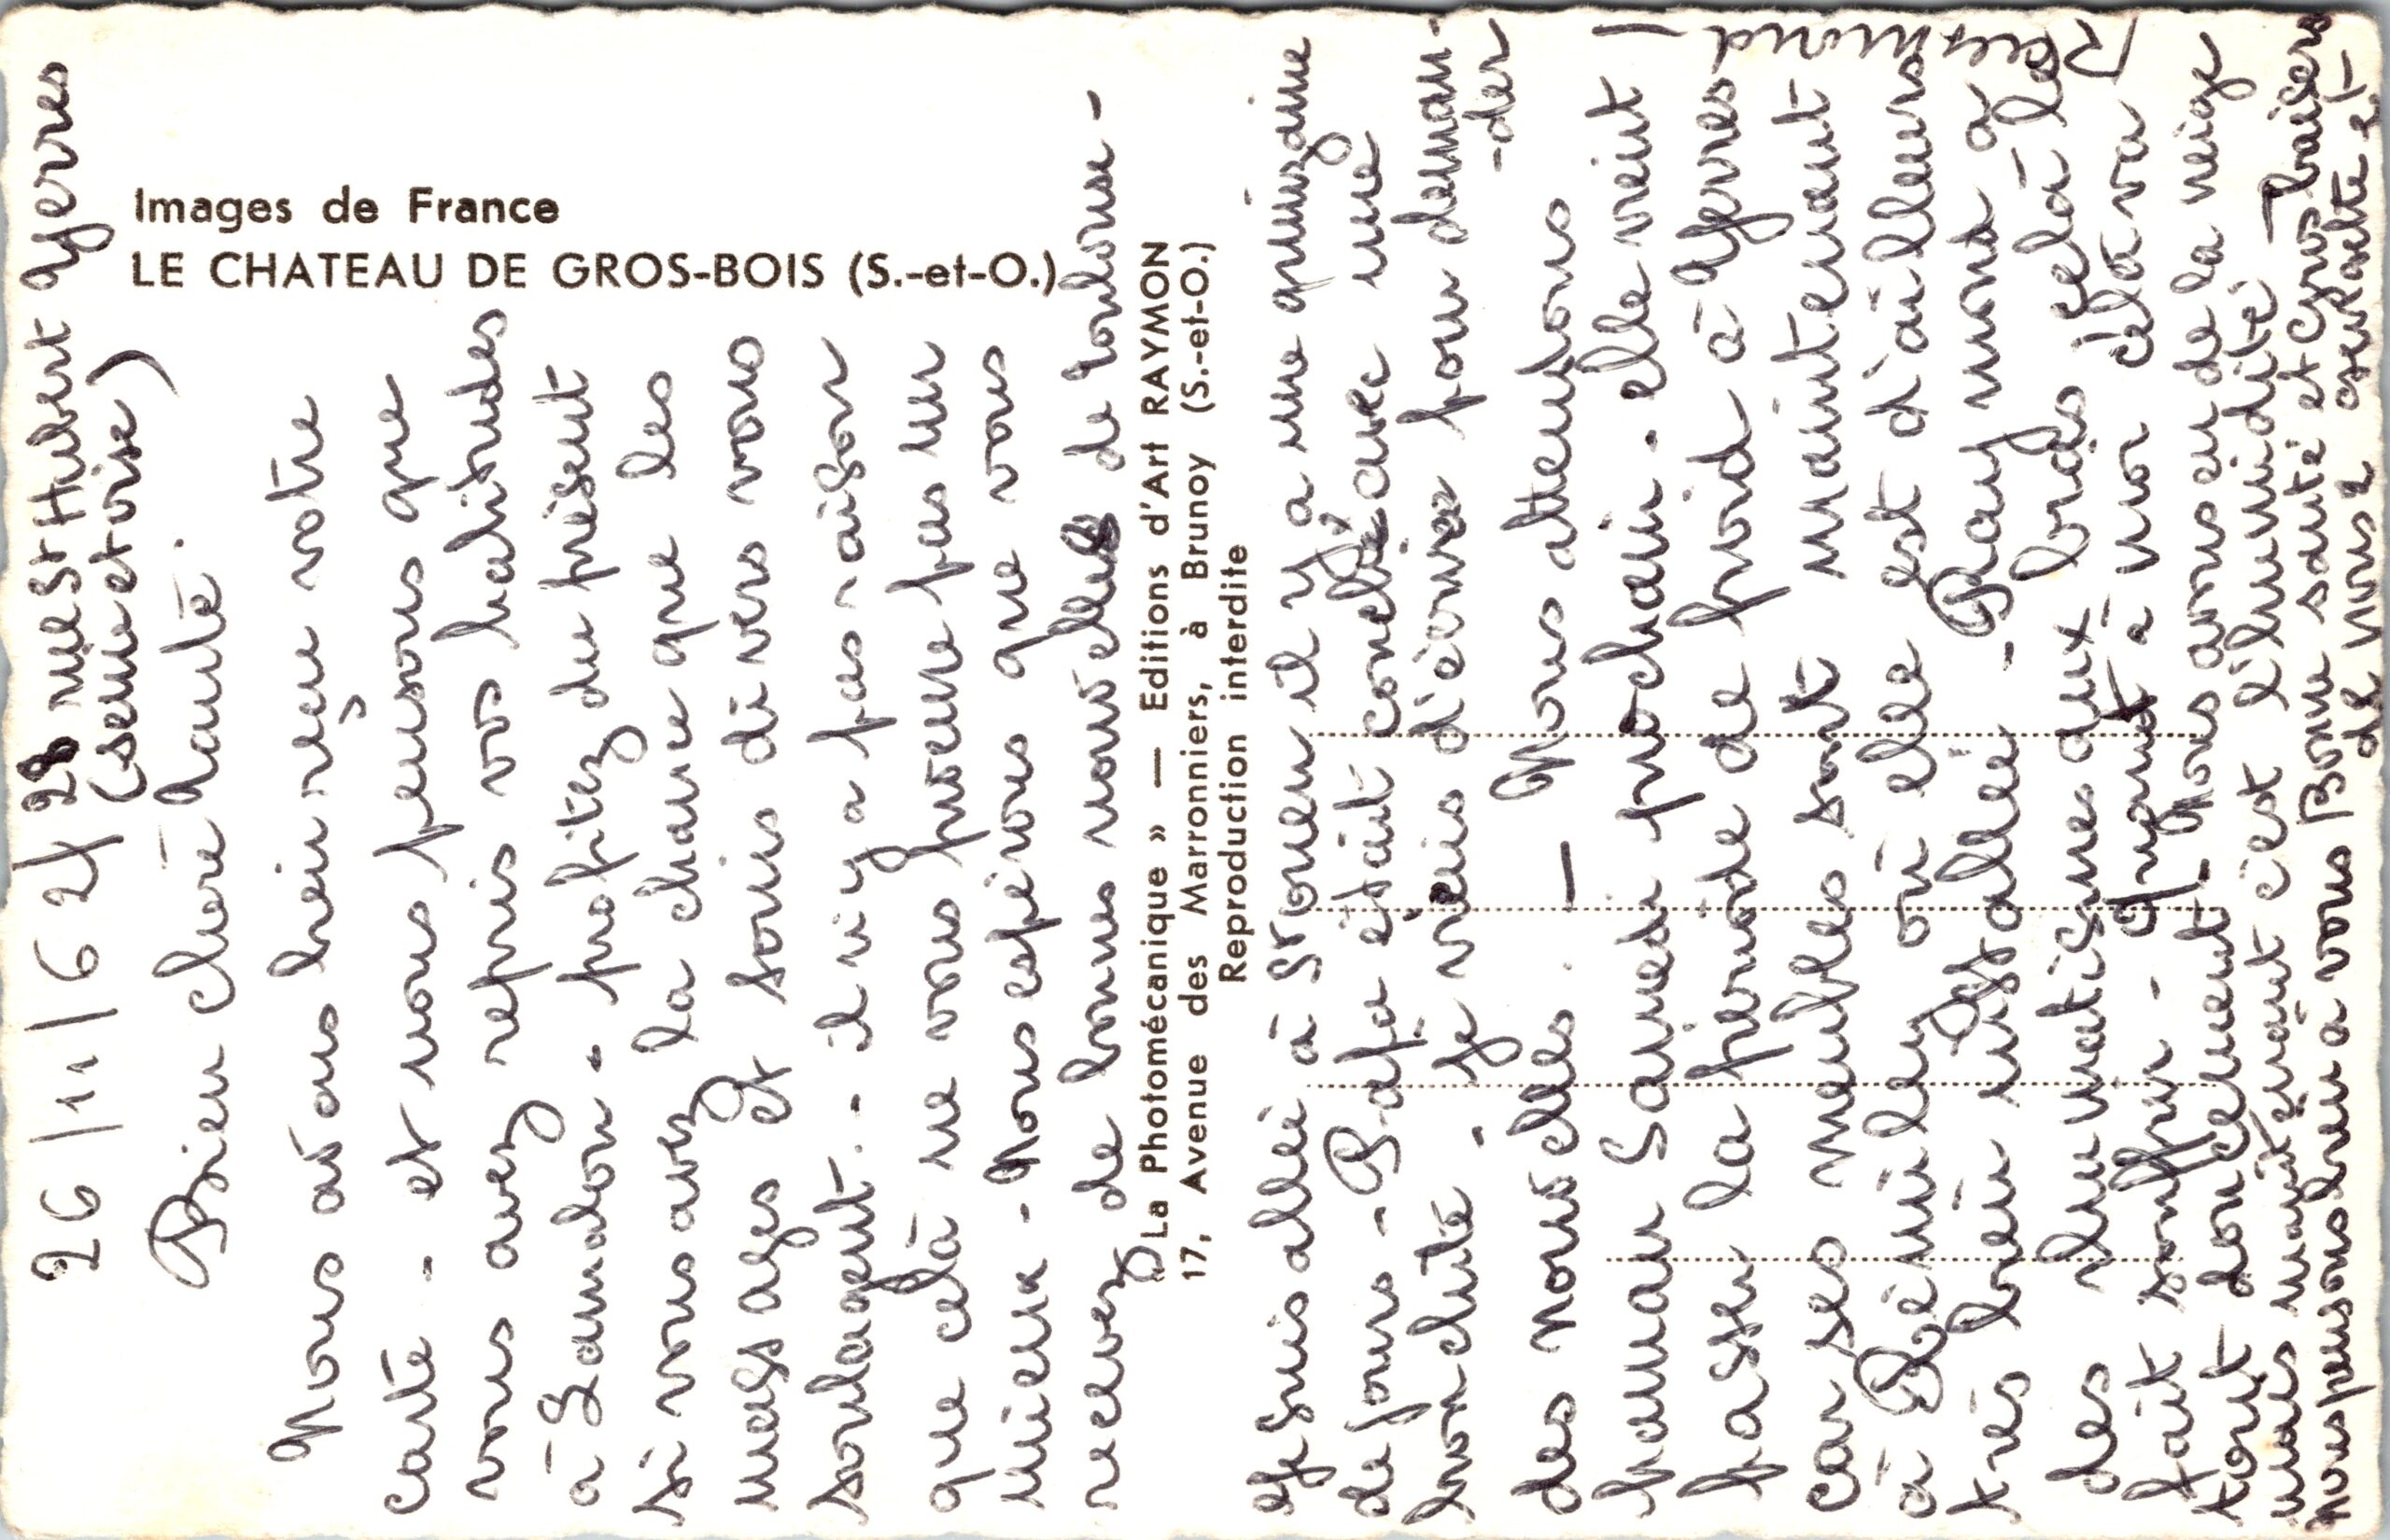 Images de France
LE CHATEAU DE GROS-BOIS (S.-et-O.)
26/11/62/ 28 rue St Hubert Yerres
(seine et oise)
Bien chère Tante.
Nous avons bien reçu votre
carte - et nous pensons que
vous avez repris vos habitudes
à - profitez du présent
si vous avez la chance que les
messages et soins divers vous
soulagent. - il n'y a pas raison
que celà ne vous procure pas un
mieux - Nous espérons que vous
recevez de bonnes nouvelles de Toulouse -
« La Photomécanique » — Editions d'Art RAYMON
17, Avenue des Marronniers, à Brunoy (S.-et-O.)
Reproduction interdite
Je suis allée à St Ouen il y a une quinzaine
de jours - Papa était couché avec une
bronchite - je viens d'écrire pour deman-
-der
des nouvelles. — Nous attendons
maman Samedi prochain - elle vient
passer la période de froid à Yerres
car ses meubles sont maintenant
à où elle est d'ailleurs
très bien installée - Raymond a
des rhumatismes aux bras celà le
fait souffrir - Quant à moi celà va
tout doucement - Nous avons eu de la neige
mais maintenant c'est l'humidité -
nous pensons bien à vous Bonne santé et Gros baisers
de nous 2 Paulette et
Raymond -